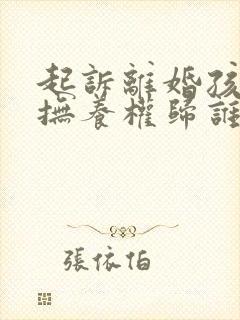 起訴離婚孩
撫養權歸誰
張依伯